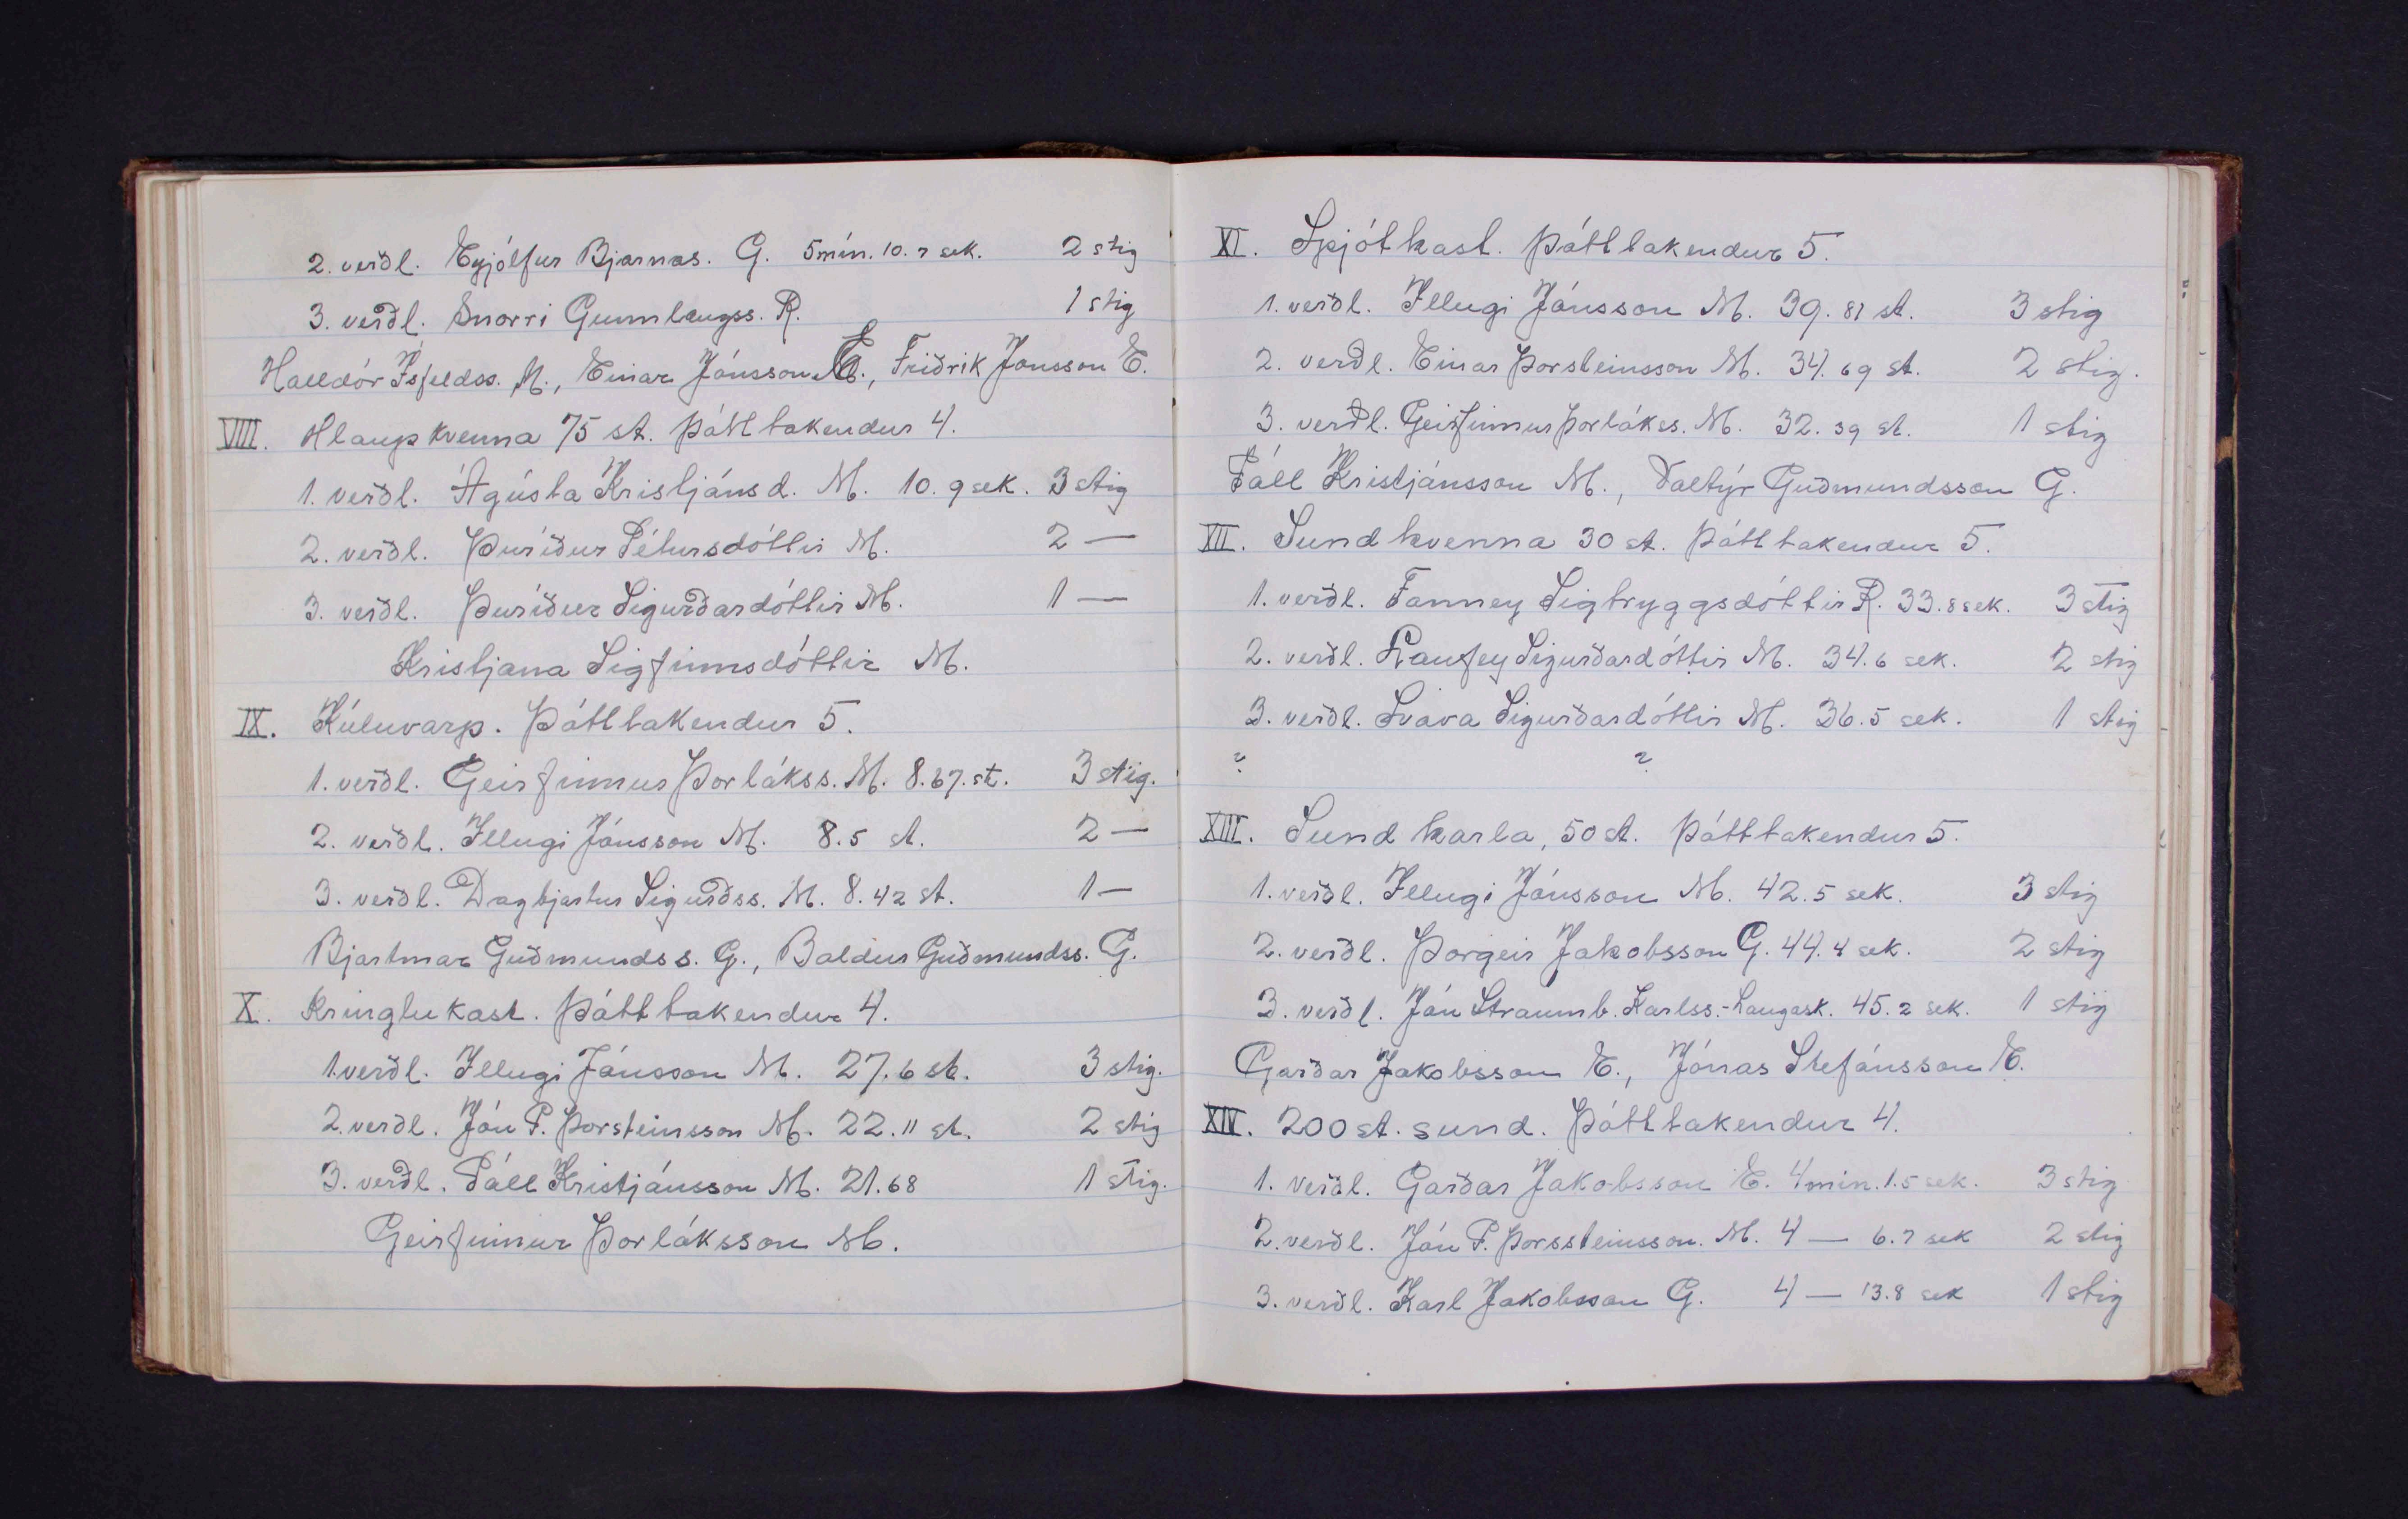 2. verðl. Eyjólfur Bjarnas. G. 5 mín. 10.7 sek. 2 stig
3. verðl. Snorri Gunnlaugss. R. 1 stig
Halldór Ísfeldss. M., Einar Jónsson E., Friðrik Jónsson E.
VIII. Hlaup kvenna 75 st. Þátttakendur 4.
1. verðl. Ágústa Kristjánsd. M. 10.9 sek. 3 stig
2. verðl. Þuríður Pétursdóttir M. 2 —
3. verðl. Þuríður Sigurðardóttir M. 1 —
Kristjana Sigfinnsdóttir M.
IX. Kúluvarp. Þátttakendur 5.
1. verðl. Geirfinnur Þorlákss. M. 8.67. st. 3 stig.
2. verðl. Illugi Jónsson M. 8.5 st. 2 —
3. verðl. Dagbjartur Sigurðss. M. 8.42 st. 1 —
Bjartmar Guðmundss. G., Baldur Guðmundss. G.
X. Kringlukast. Þátttakendur 4.
1. verðl. Illugi Jónsson M. 27.6 st. 3 stig.
2. verðl. Jón P. Þorsteinsson M. 22.11 st. 2 stig
3. verðl. Páll Kristjánsson M. 21.68 1 stig.
Geirfinnur Þorláksson M.
XI. Spjótkast. Þátttakendur 5.
1. verðl. Illugi Jónsson M. 39.81 st. 3 stig
2. verðl. Einar Þorsteinsson M. 34.69 st. 2 stig.
3. verðl. Geirfinnur Þorlákss. M. 32.39 st. 1 stig
Páll Kristjánsson M., Valtýr Guðmundsson G.
XII. Sund kvenna 30 st. Þátttakendur 5.
1. verðl. Fanney Sigtryggsdóttir R. 33.8 sek. 3 stig
2. verðl. Laufey Sigurðardóttir M. 34.6 sek. 2 stig
3. verðl. Svava Sigurðardóttir M. 36.5 sek. 1 stig
? ?
XIII. Sund karla, 50 st. Þátttakendur 5.
1. verðl. Illugi Jónsson M. 42.5 sek. 3 stig
2. verðl. Þorgeir Jakobsson G. 44.4 sek. 2 stig
3. verðl. Jón Straumb. Karlss.-Laugask. 45.2 sek. 1 stig
Garðar Jakobsson E., Jónas Stefánsson E.
XIV. 200 st. sund. Þátttakendur 4.
1. verðl. Garðar Jakobsson E. 4 mín. 1.5 sek. 3 stig
2. verðl. Jón P. Þorssteinsson. M. 4 — 6.7 sek 2 stig
3. verðl. Karl Jakobsson G. 4 — 13.8 sek 1 stig